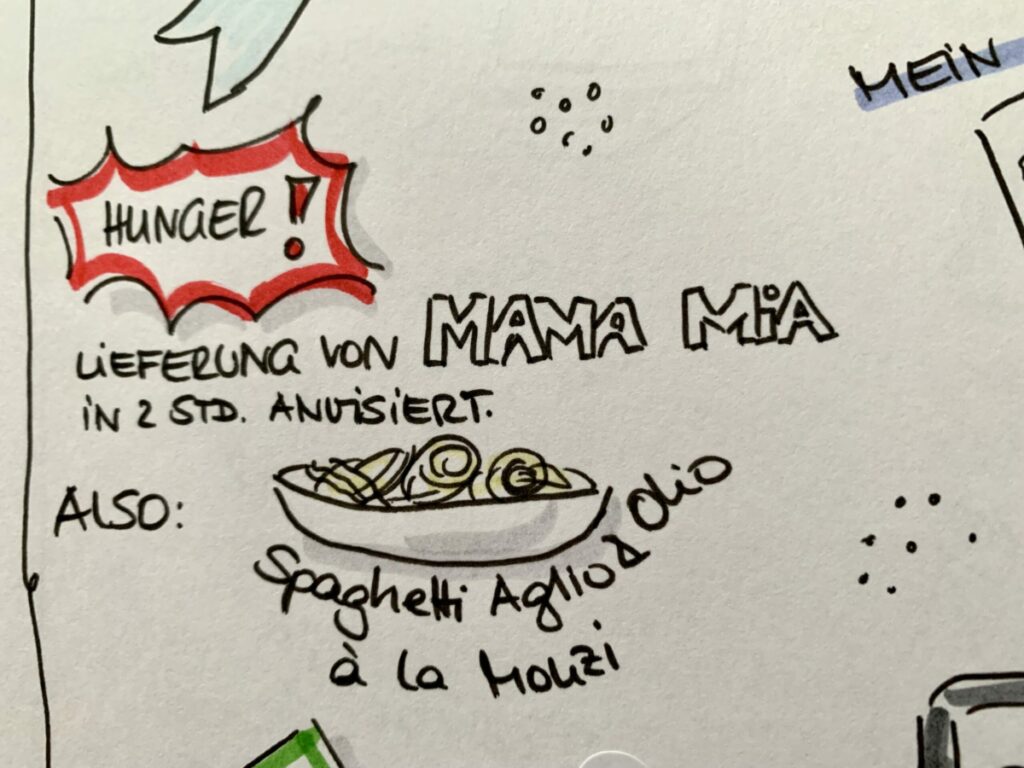 MEIN
HUNGER!
LIEFERUNG VON MAMA MIA
IN 2 STD. ANVISIERT.
ALSO:
Spaghetti Aglio & Olio
à la Mouzi